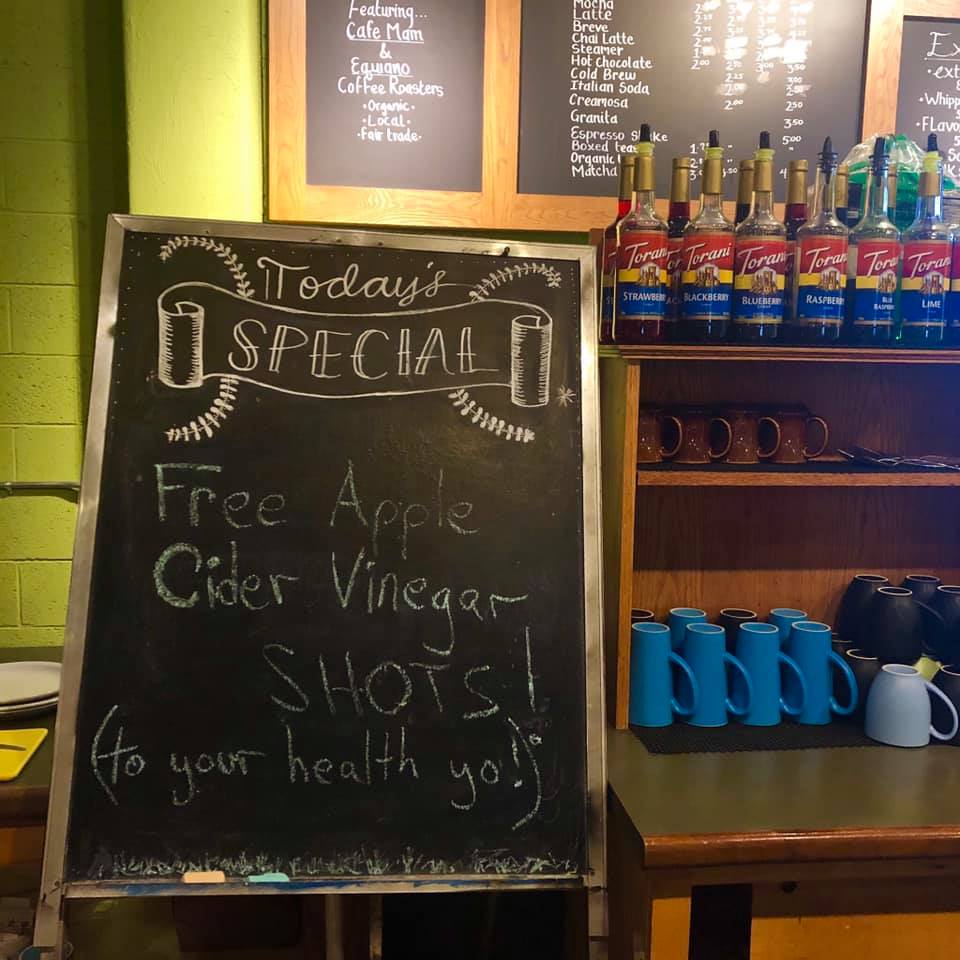 Featuring...
Cafe Mam
&
Equiano
Coffee Roasters
•Organic•
•Local•
•Fair trade•
Mocha
Latte
Breve
Chai Latte
Steamer
Hot Chocolate
Cold Brew
Italian Soda
Creamosa
Granita
Espresso Shake
Boxed teas
Organic
Matcha
2.00
2.00
2.50
3.50
Today's
SPECIAL
Free Apple
Cider Vinegar
SHOTS!
(to your health yo!)
Torani
STRAWBERRY
Torani
BLACKBERRY
Torani
BLUEBERRY
Torani
RASPBERRY
Torani
BLUE
RASPBERRY
Torani
LIME